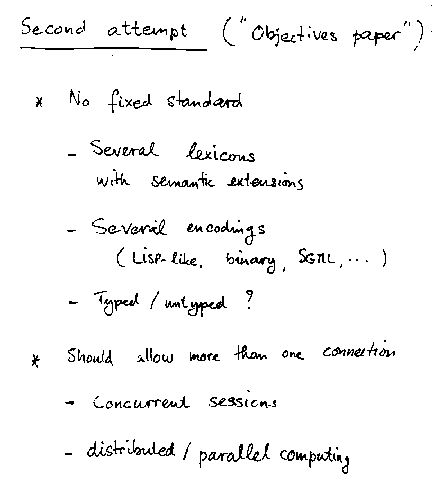 Second attempt ("Objectives paper")
* No fixed standard
- Several lexicons
with semantic extensions
- Several encodings
(Lisp-like, binary, SGML, ...)
- Typed / untyped ?
* Should allow more than one connection
- Concurrent sessions
- distributed / parallel computing